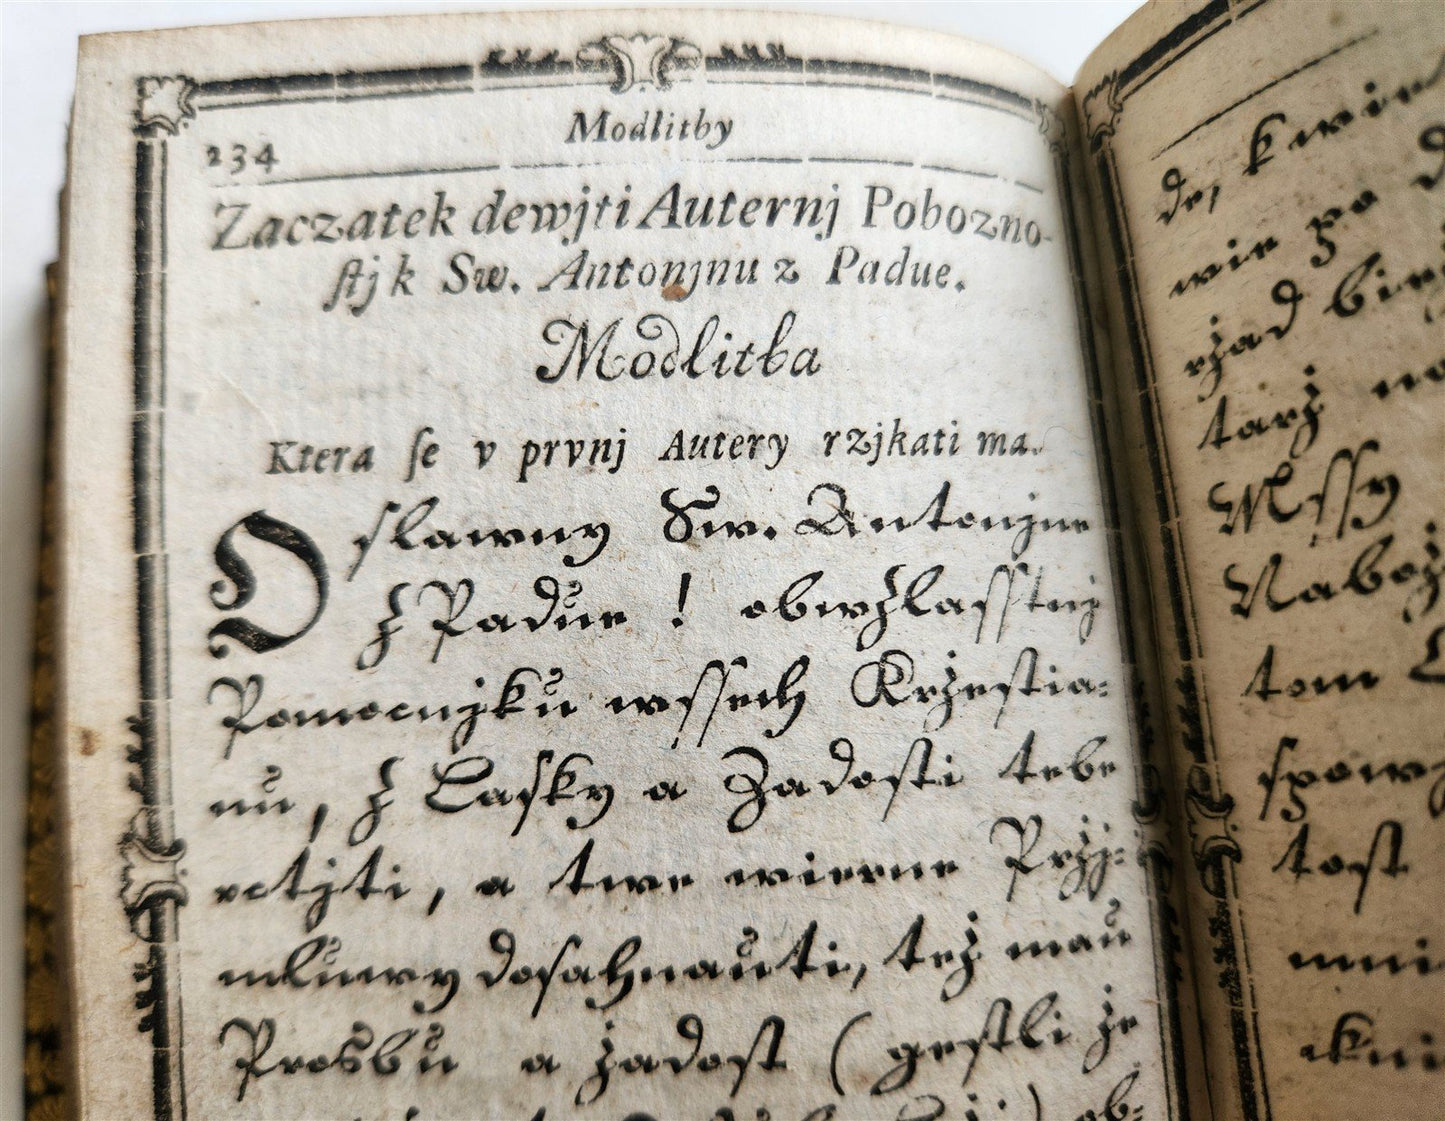 Modlitby
234
Zaczatek dewjti Auternj Pobozno-
stj k Sw. Antonjnu z Padue.
Modlitba
Ktera se v prvnj Autery rzjkati ma.
O slawny Sw. Antonjne
z Padue ! obwzlasstnj
Pomocnjku wssech Krzestia=
nu, z Lasky a Zadosti tebe
vctjti, a twe wierne Przj=
mluwy dosahnauti, též mau
Prosbu a žadost (gestli že
ob=
de, kwie
wie po
ržad
tarž
Mssy
Nabož
tom
spow
tost